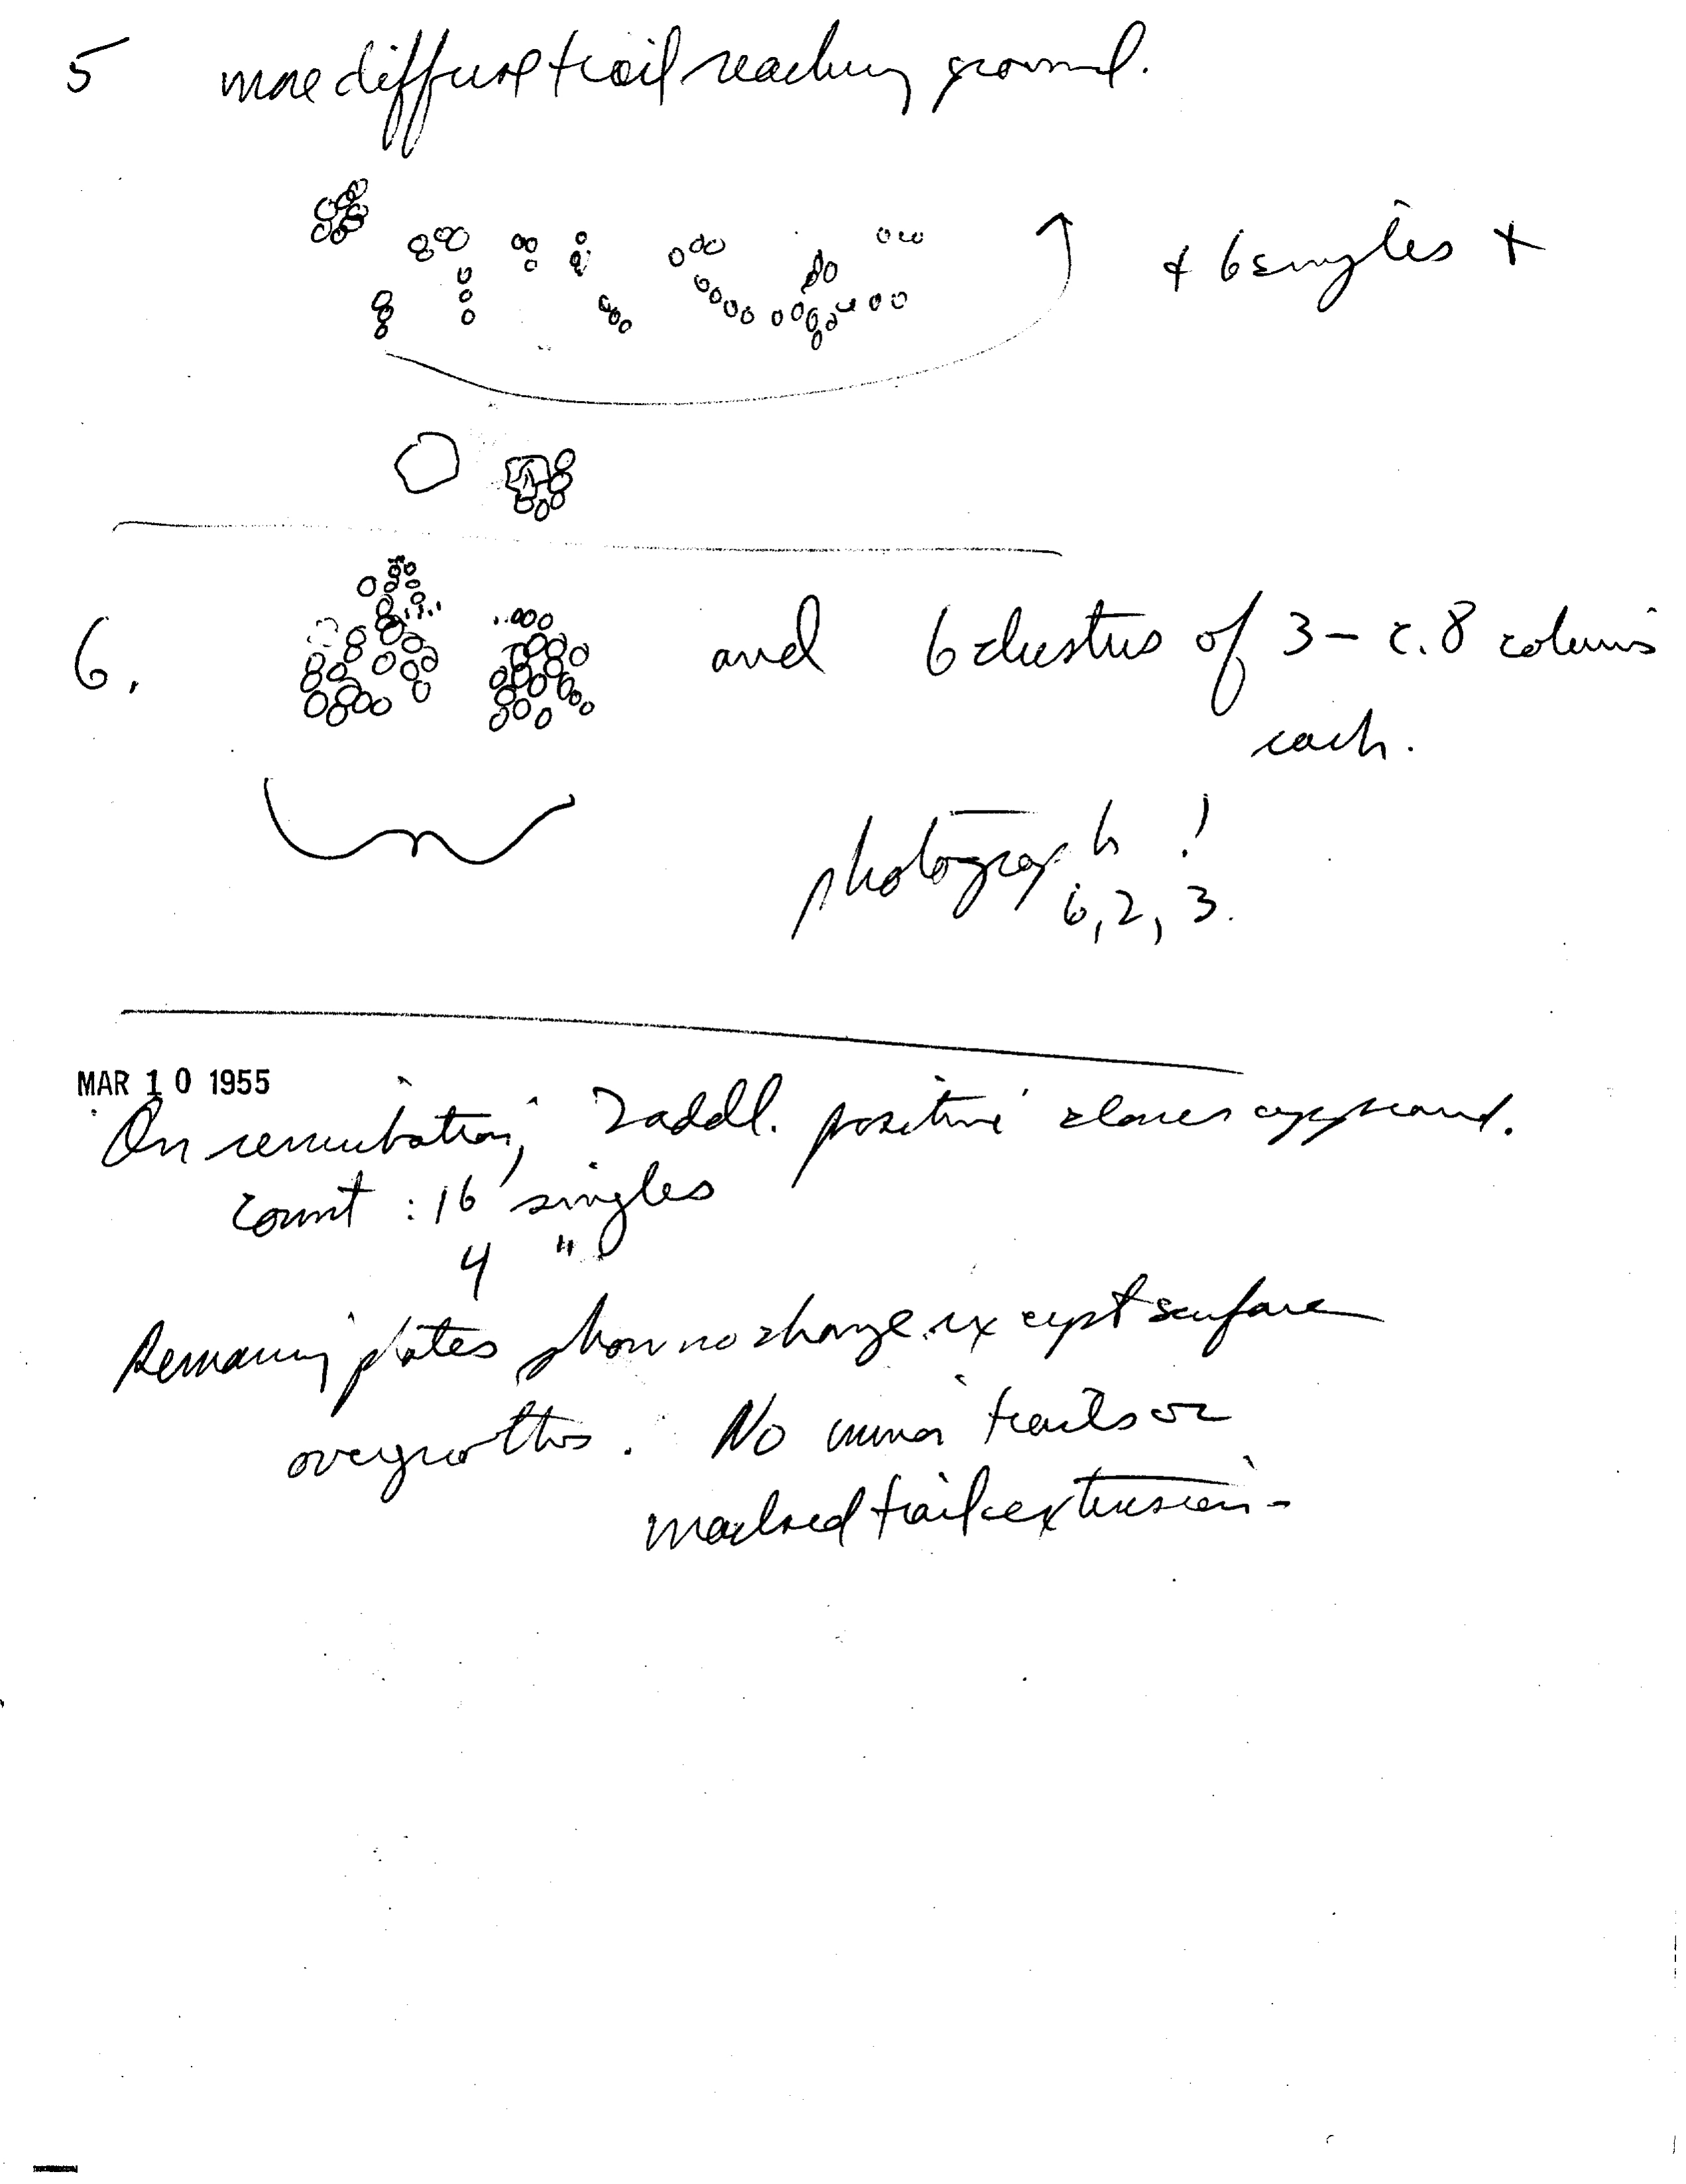 5 more diffuse trail reaching ground.
+ 6 singles +
6. and 6 clusters of 3 – c. 8 colonies
each.
photograph!
6, 2, 3.
MAR 10 1955
On reincubation, 2 addl. positive clones appeared.
count : 16 singles
4 "
Remaining plates show no change except surface
overgrowths. No minor trails or
marked trail extension -